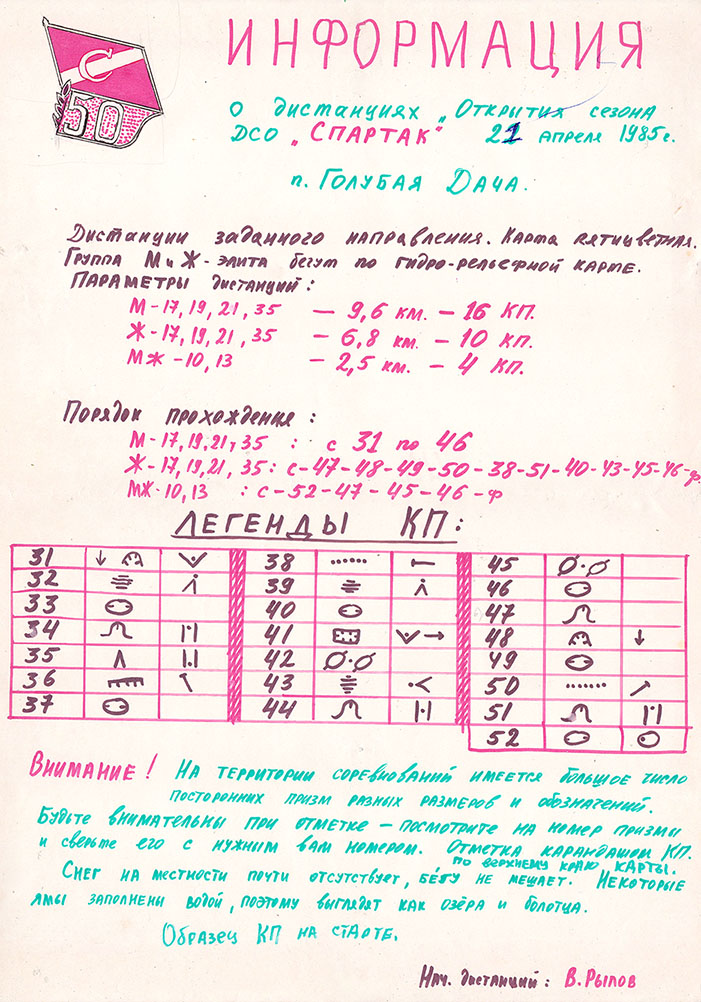 С
50
ИНФОРМАЦИЯ
О дистанциях „Открытия сезона
ДСО „СПАРТАК" 21 апреля 1985 г.
п. Голубая Дача.
Дистанции заданного направления. Карта пятицветная.
Группа М и Ж - элита бегут по гидро-рельефной карте.
Параметры дистанций:
М-17, 19, 21, 35 – 9,6 км. – 16 КП.
Ж-17, 19, 21, 35 – 6,8 км. – 10 КП.
МЖ-10, 13 – 2,5 км. – 4 КП.
Порядок прохождения:
М-17, 19, 21, 35 : с 31 по 46
Ж-17, 19, 21, 35: с-47-48-49-50-38-51-40-43-45-46-ф.
МЖ-10, 13 : с-52-47-45-46-ф
ЛЕГЕНДЫ КП:
31 38 45
32 39 46
33 40 47
34 41 48
35 42 49
36 43 50
37 44 51
52
Внимание! На территории соревнований имеется большое число
посторонних призм разных размеров и обозначений.
Будьте внимательны при отметке – посмотрите на номер призмы
и сверьте его с нужным вам номером. Отметка карандашом КП.
по верхнему краю карты.
Снег на местности почти отсутствует, бегу не мешает. Некоторые
ямы заполнены водой, поэтому выглядят как озёра и болотца.
Образец КП на старте.
Нач. дистанций: В. Рылов